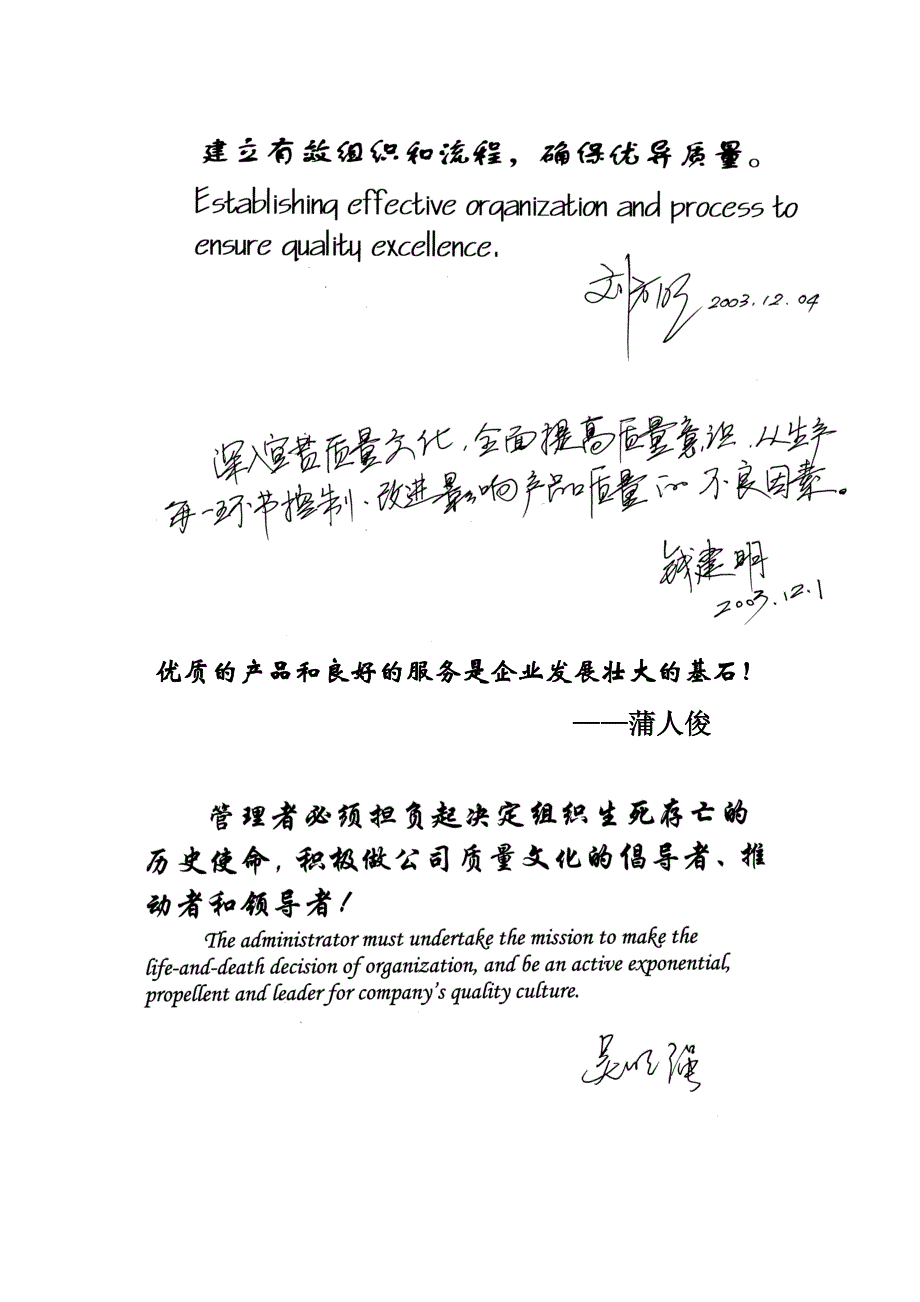 建立有效组织和流程，确保优异质量。
Establishing effective organization and process to
ensure quality excellence.
2003.12.04
深入宣贯质量文化，全面提高质量意识，从生产
每一环节控制、改进影响产品质量的不良因素。
钱建明
2003.12.1
优质的产品和良好的服务是企业发展壮大的基石！
——蒲人俊
管理者必须担负起决定组织生死存亡的
历史使命，积极做公司质量文化的倡导者、推
动者和领导者！
The administrator must undertake the mission to make the
life-and-death decision of organization, and be an active exponential,
propellent and leader for company's quality culture.
吴明强